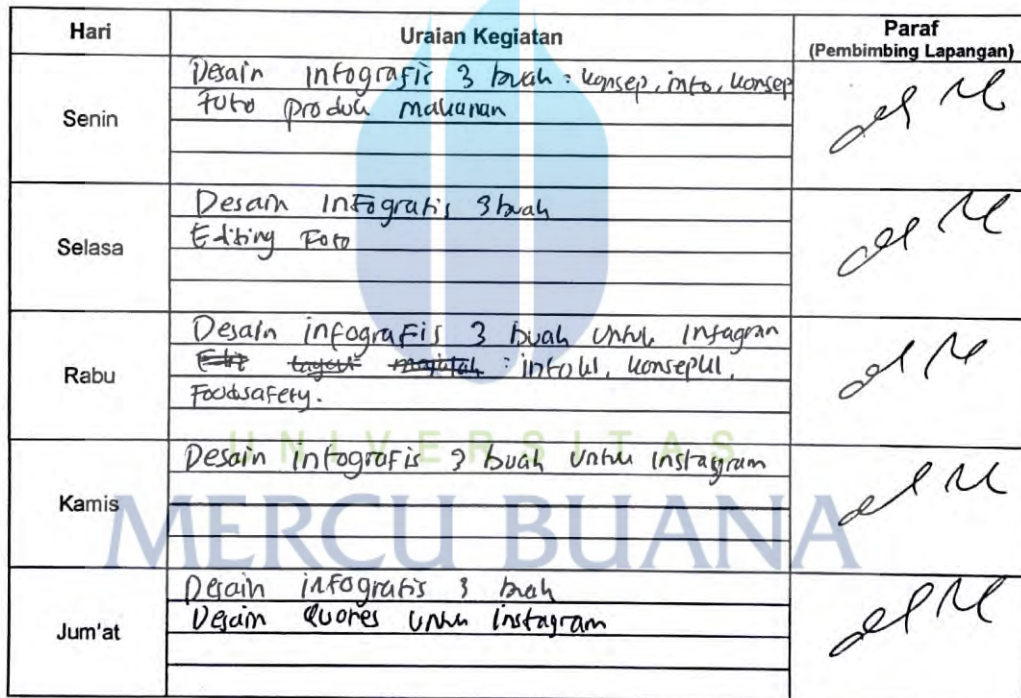 Hari Uraian Kegiatan Paraf
(Pembimbing Lapangan)
Senin
Desain Infografis 3 buah : konsep, info, konsep
Foto produk makanan
Selasa
Desain Infografis 3 buah
Editing Foto
Rabu
Desain infografis 3 buah untuk Instagram
Edit layout majalah : infokul, konsepkul,
Foodsafety.
UNIVERSITAS
MERCU BUANA
Kamis
Desain Infografis 3 buah untuk instagram
Jum'at
Desain infografis 3 buah
Desain Quotes untuk instagram